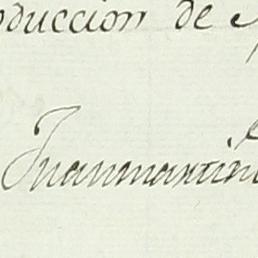 oduccion de
Juanmartin